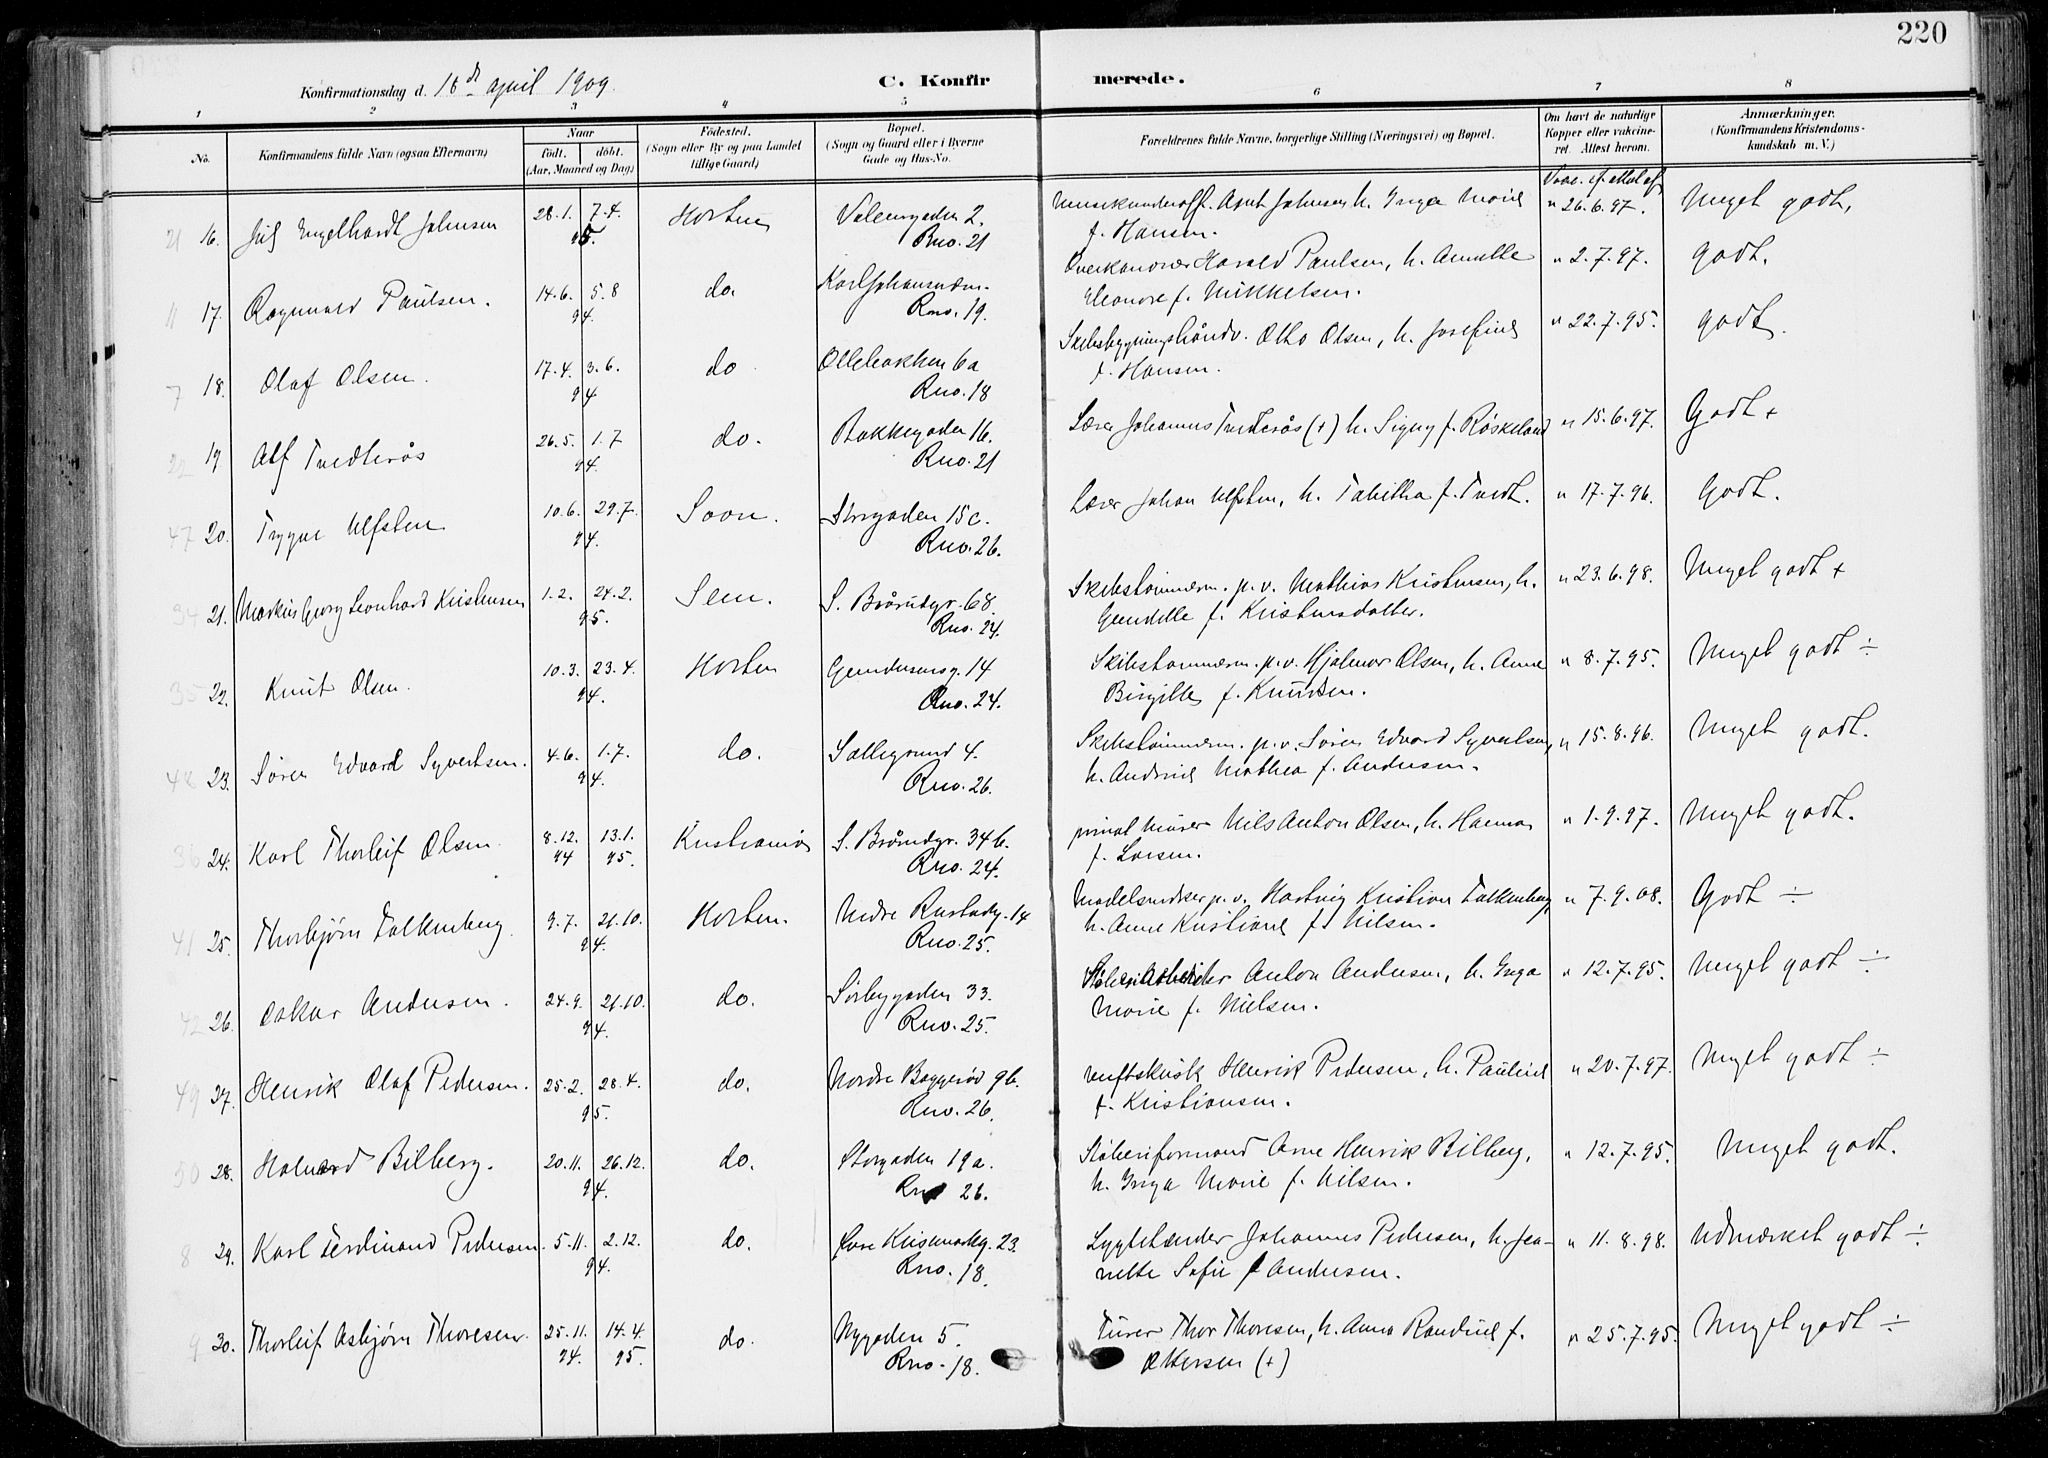 220
Konfirmationsdag d. 18de april 1909.
C. Konfirmerede.
1 2 3 4 5 6 7 8
No.
Konfirmandens fulde Navn (ogsaa Efternavn)
Naar
født. døbt.
(Aar, Maaned og Dag)
Fødested.
(Sogn eller By og paa Landet
tillige Gaard)
Bopæl.
(Sogn og Gaard eller i Byerne
Gade og Hus-No.
Forældrenes fulde Navne, borgerlige Stilling (Næringsvei) og Bopæl.
Om havt de naturlige
Kopper eller vakcine-
ret. Attest herom.
Anmærkninger.
(Konfirmandens Kristendoms-
kundskab m. V.)
21 16. Engelhardt Johnsen 28.1. 7.4. 95. Horten 2. Rno. 21 Arnt Johnsen h. Inga Marie f. Hansen. " 26.6.97. Meget godt.
11 17. Ragnvald Paulsen. 14.6. 5.8 94. do. Karljohansværn. Rno. 19. Overkanoner Harald Paulsen, h. Annette Eleonore f. Mikkelsen. " 2.7.97. godt.
7 18. Olaf Olsen. 17.4. 3.6. 94 do Ollebakken 6a Rno. 18 Skibsbygningshåndv. Otto Olsen, h. Josefine f. Hansen. " 22.7.95. godt.
22 19 Alf Tvedterås 26.5. 1.7 94. do. Bakkegaden 16. Rno. 21 Lærer Johannes Tvedterås (+) h. Signy f. Røskeland " 15.6.97. Godt +
47 20. Trygve Ulfsten 10.6. 29.7. 94. Soon. Storgaden 15c. Rno. 26. Lærer Johan Ulfsten, h. Tabitha f. Tvedt. " 17.7.96. Godt.
34 21. Markus Georg Leonhard Kristensen 1.2. 24.2. 95. Sem. S. Bråradgr. 68. Rno. 24. Skibstømmerm. p.v. Mathias Kristensen, h. f. Kristensdatter. " 23.6.98. Meget godt +
35 22. Knut Olsen. 10.3. 23.4. 94. Horten Gundersensg. 14 Rno. 24. Skibstømmerm. p.v. Hjalmar Olsen, h. Anne Birgitte f. Knudsen. " 8.7.95. Meget godt ÷
48 23. Søren Edvard Syvertsen. 4.6. 1.7. 94. do. Sollegrund 4. Rno. 26. Skibstømmerm. p.v. Søren Edvard Syvertsen, h. Andrine Mathea f. Andersen. " 15.8.96. Meget godt.
36 24. Karl Thorleif Olsen. 8.12. 94 13.1. 95. Kristiania S. Bråradgr. 34b. Rno. 24. privat Murer Nils Anton Olsen, h. Hanna f. Larsen. " 1.9.97. Meget godt.
41 25. Thorbjørn Falkenberg. 9.7. 21.10. 94. Horten. Nedre Rustadg. 14 Rno. 25. Modelsnedker p.v. Hartvig Kristian Falkenberg, h. Anne Kristiane f. Nilsen. " 7.9.08. Godt ÷
42 26. Oskar Andersen. 24.9. 21.10. 94. do. Sørbygaden 33. Rno. 25. Støberiarbeider Anton Andersen, h. Inga Marie f. Nielsen. " 12.7.95. Meget godt ÷
49 27. Henrik Olaf Pedersen. 25.2. 28.4. 95. do. Nordre Baggerød 9b. Rno. 26. Henrik Pedersen, h. Pauline f. Kristiansen. " 20.7.97. Meget godt ÷
50 28. Halvard Bilberg. 20.11. 26.12. 94. do. Storgaden 19a. Rno 26. Støberiformand Arne Henrik Bilberg, h. Inga Marie f. Nilsen. " 12.7.95. Meget godt.
8 29. Karl Ferdinand Pedersen. 5.11. 2.12. 94. do. 23. Rno. 18. Lygtetænder Johannes Pedersen, h. Jeanette Sofie f Andersen. " 11.8.98. Udmærket godt ÷
9 30. Thorleif Asbjørn Thoresen. 25.11. 94. 14.4. 95. do. Nygaden 5. Rno. 18. Thor Thoresen, h. Anna Randine f. (+) " 25.7.95. Meget godt ÷